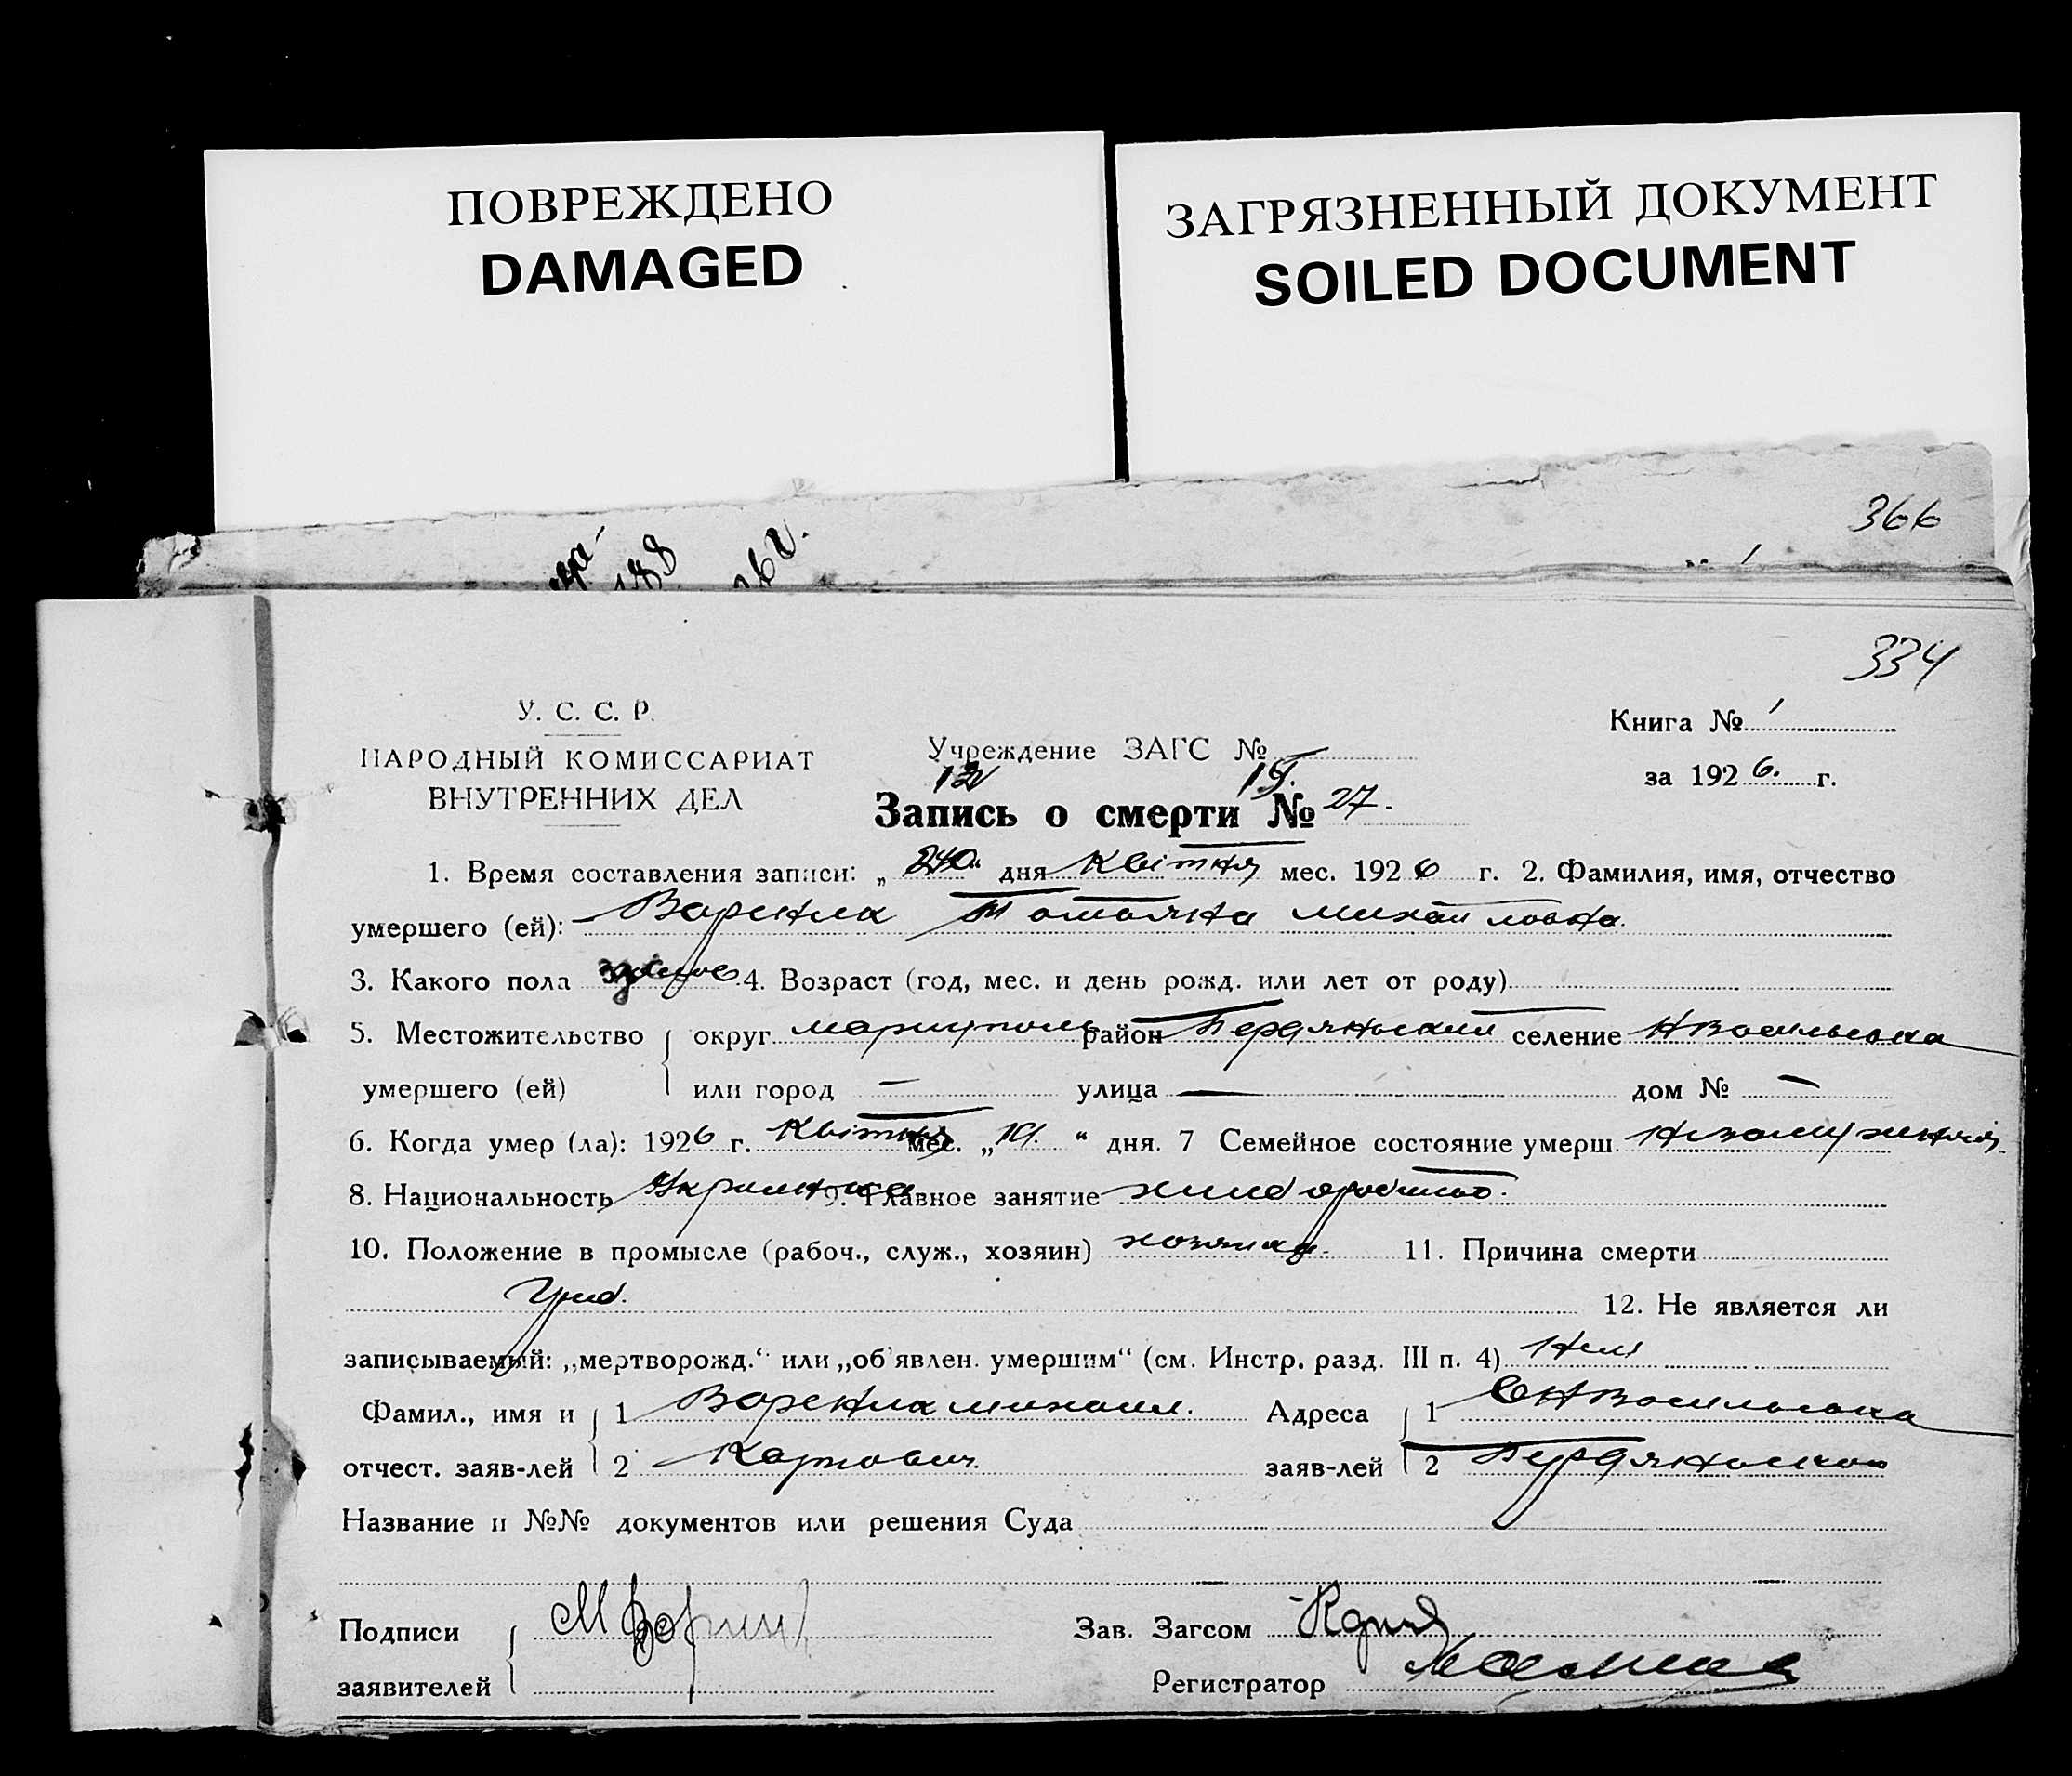 ПОВРЕЖДЕНО
DAMAGED
ЗАГРЯЗНЕННЫЙ ДОКУМЕНТ
SOILED DOCUMENT
366
188
334
У. С. С. Р.
НАРОДНЫЙ КОМИССАРИАТ
ВНУТРЕННИХ ДЕЛ
Учреждение ЗАГС №
Книга № 1
за 1926. г.
Запись о смерти № 27.
1. Время составления записи: „ “ дня Квітня мес. 1926 г. 2. Фамилия, имя, отчество
умершего (ей): Вареник Татьяна Михайловна.
3. Какого пола 4. Возраст (год, мес. и день рожд. или лет от роду)
5. Местожительство округ Мариуполь район Бердянський селение НВасильевка
умершего (ей) или город — улица — дом № —
6. Когда умер (ла): 1926 г. Квітня мес. „ “ дня. 7 Семейное состояние умерш.
8. Национальность Украинка 9. Главное занятие
10. Положение в промысле (рабоч., служ., хозяин) 11. Причина смерти
12. Не является ли
записываемый: „мертворожд.“ или „об'явлен. умершим“ (см. Инстр. разд. III п. 4)
Фамил., имя и 1 Вареник Михаил. Адреса 1 СНВасильевка
отчест. заяв-лей 2 Карпович заяв-лей 2
Название и №№ документов или решения Суда
Подписи Зав. Загсом
заявителей Регистратор